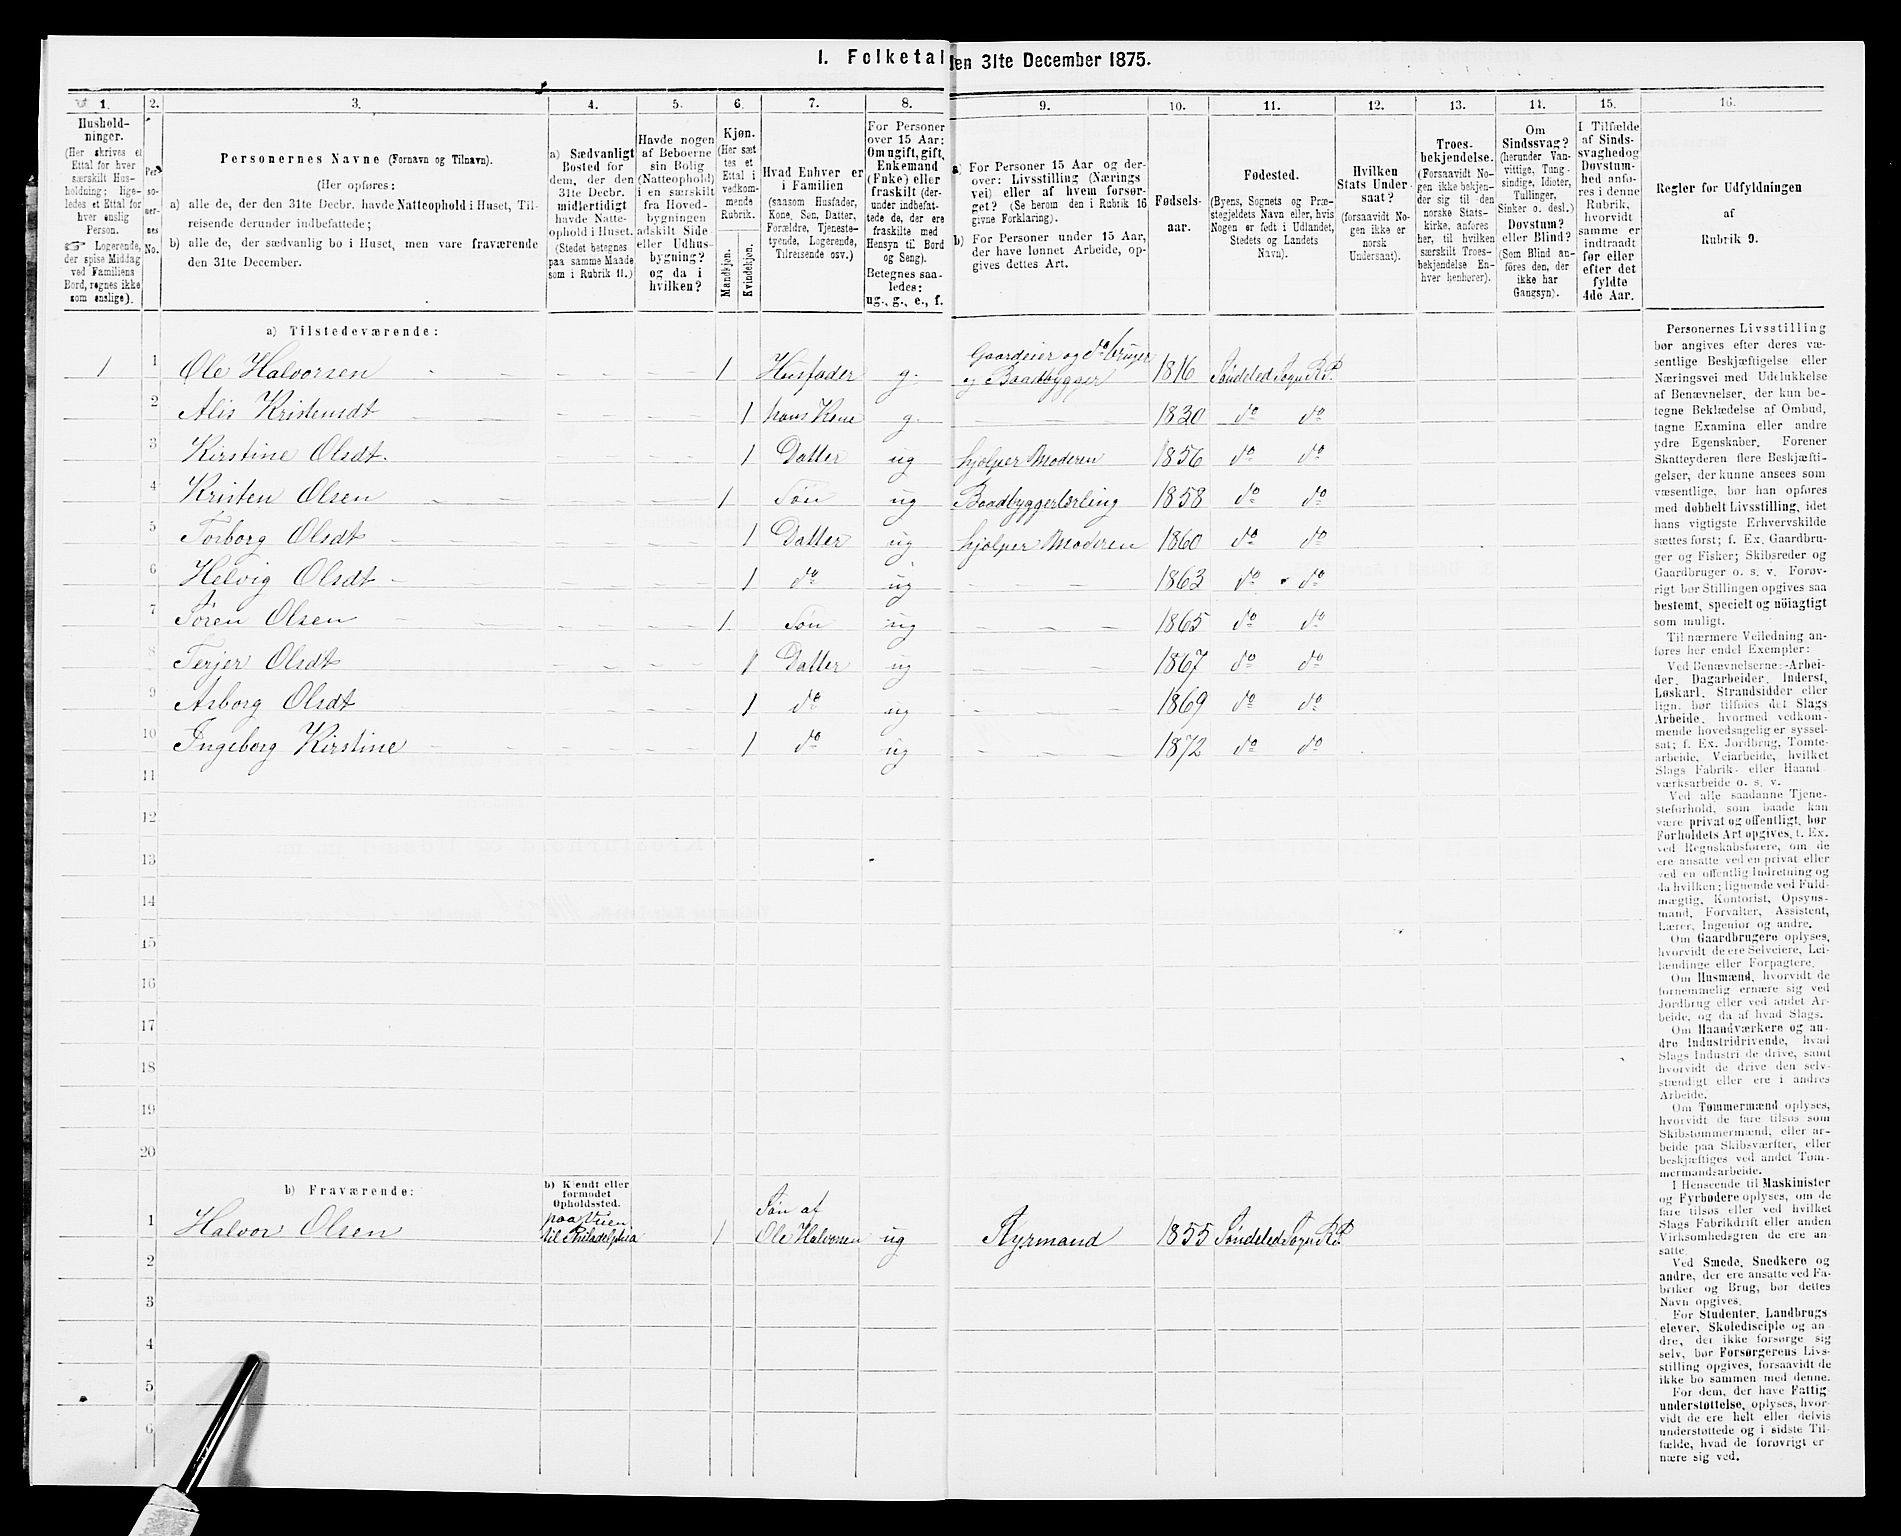 I. Folketal den 31te December 1875.
1. 2. 3. 4. 5. 6. 7. 8. 9. 10. 11. 12. 13. 14. 15. 16.
Hushold-
ninger.
(Her skrives et
Ettal for hver
særskilt Hus-
holdning; lige-
ledes et Ettal for
hver enslig
Person.
☞ Logerende,
der spise Middag
ved Familiens
Bord, regnes ikke
som enslige).
Per-
so-
ner-
nes
No.
Personernes Navne (Fornavn og Tilnavn).
(Her opføres:
a) alle de, der den 31te Decbr. havde Natteophold i Huset, Til-
reisende derunder indbefattede;
b) alle de, der sædvanlig bo i Huset, men vare fraværende
den 31te December.
a) Sædvanligt
Bosted for
dem, der den
31te Decbr.
midlertidigt
havde Natte-
ophold i Huset.
(Stedet betegnes
paa samme Maade
som i Rubrik 11.)
Havde nogen
af Beboerne
sin Bolig
(Natteophold)
i en særskilt
fra Hoved-
bygningen
adskilt Side-
eller Udhus-
bygning?
og da i
hvilken?
Kjøn.
(Her sæt-
tes et
Ettal i
vedkom-
mende
Rubrik.
Mandkjøn.
Kvindekjøn.
Hvad Enhver er
i Familien
(saasom Husfader,
Kone, Søn, Datter,
Forældre, Tjeneste-
tyende, Logerende,
Tilreisende osv.)
For Personer
over 15 Aar:
Om ugift, gift,
Enkemand
(Enke) eller
fraskilt (der-
under indbefat-
tede de, der ere
fraskilte med
Hensyn til Bord
og Seng).
Betegnes saa-
ledes:
ug., g., e., f.
a) For Personer 15 Aar og der-
over: Livsstilling (Nærings-
vei) eller af hvem forsør-
get? (Se herom den i Rubrik 16
givne Forklaring).
b) For Personer under 15 Aar,
der have lønnet Arbeide, op-
gives dettes Art.
Fødsels-
aar.
Fødested.
(Byens, Sognets og Præ-
stegjeldets Navn eller, hvis
Nogen er født i Udlandet,
Stedets og Landets
Navn).
Hvilken
Stats Under-
saat?
(forsaavidt No-
gen ikke er
norsk
Undersaat).
Troes-
bekjendelse.
(Forsaavidt No-
gen ikke bekjen-
der sig til den
norske Stats-
kirke, anføres
her, til hvilken
særskilt Troes-
bekjendelse En-
hver henhører).
Om
Sindssvag?
(herunder Van-
vittige, Tung-
sindige, Idioter,
Tullinger,
Sinker o. desl.)
Døvstum?
eller Blind?
(Som Blind an-
føres den, der
ikke har
Gangsyn).
I Tilfælde
af Sinds-
svaghed og
Døvstum-
hed anfø-
res i denne
Rubrik,
hvorvidt
samme er
indtraadt
før eller
efter det
fyldte
4de Aar.
Regler for Udfyldningen
af
Rubrik 9.
a) Tilstedeværende:
Gaardeier og do bruger
1 1 Ole Halvorsen 1 Husfader g. og Baadbygger 1816 Søndeled Sogn R. P.
2 Alis Kristensdt 1 hans Kone g. 1830 do do
3 Kirstine Olsdt. 1 Datter ug hjælper Moderen 1856 do do
4 Kristen Olsen 1 Søn ug Baadbyggerlærling 1858 do do
5 Torborg Olsdt 1 Datter ug hjælper Moderen 1860 do do
6 Helvig Olsdt 1 do ug 1863 do do
7 Søren Olsen 1 Søn ug 1865 do do
8 Terjer Olsdt 1 Datter ug 1867 do do
9 Asborg Olsdt 1 do ug 1869 do do
10 Ingeborg Kirstine 1 do ug 1872 do do
11
12
13
14
15
16
17
18
19
20
b) Fraværende:
b) Kjendt eller
formodet
Opholdssted.
paa Veien Søn af
1 Halvor Olsen til Philadelphia 1 Ole Halvorsen ug Styrmand 1855 Søndeled Sogn R. P.
2
3
4
5
6
Personernes Livsstilling
bør angives efter deres væ-
sentlige Beskjæftigelse eller
Næringsvei med Udelukkelse
af Benævnelser, der kun be-
tegne Beklædelse af Ombud,
tagne Examina eller andre
ydre Egenskaber. Forener
Skatteyderen flere Beskjæfti-
gelser, der kunne ansees som
væsentlige, bør han opføres
med dobbelt Livsstilling, idet
hans vigtigste Erhvervskilde
sættes først; f. Ex. Gaardbru-
ger og Fisker; Skibsreder og
Gaardbruger o. s. v. Forøv-
rigt bør Stillingen opgives saa
bestemt, specielt og nöiagtigt
som muligt.
Til nærmere Veiledning an-
føres her endel Exempler:
Ved Benævnelserne: Arbei-
der, Dagarbeider, Inderst,
Løskarl, Strandsidder eller
lign. bør tilføies det Slags
Arbeide, hvormed vedkom-
mende hovedsagelig er syssel-
sat; f. Ex. Jordbrug, Tomte-
arbeide, Veiarbeide, hvilket
Slags Fabrik- eller Haand-
værksarbeide o. s. v.
Ved alle saadanne Tjene-
steforhold, som baade kan
være privat og offentligt, bør
Forholdets Art opgives, t. Ex.
ved Regnskabsførere, om de
ere ansatte ved en privat eller
ved en offentlig Indretning og
da hvilken; lignende ved Fuld-
mægtig, Kontorist, Opsyns-
mand, Forvalter, Assistent,
Lærer, Ingeniør og andre.
Om Gaardbrugere oplyses,
hvorvidt de ere Selveiere, Lei-
lændinge eller Forpagtere.
Om Husmænd, hvorvidt de
fornemmelig ernære sig ved
Jordbrug eller ved andet Ar-
beide, og da af hvad Slags.
Om Haandværkere og an-
dre Industridrivende, hvad
Slags Industri de drive, samt
hvorvidt de drive den selv-
stændigt eller ere i andres
Arbeide.
Om Tømmermænd oplyses,
hvorvidt de fare tilsøs som
Skibstømmermænd, eller ar-
beide paa Skibsværfter, eller
beskjæftiges ved andet Tøm-
mermandsarbeide.
I Henseende til Maskinister
og Fyrbødere oplyses, om de
fare tilsøs eller ved hvilket
Slags Fabrikdrift eller anden
Virksomhedsgren de ere an-
satte.
Ved Smede, Snedkere og
andre, der ere ansatte ved Fa-
briker og Brug, bør dettes
Navn opgives.
For Studenter, Landbrugs-
elever, Skoledisciple og an-
dre, der ikke forsørge sig
selv, bør Forsørgerens Livs-
stilling opgives, forsaavidt de
ikke bo sammen med denne.
For dem, der have Fattig-
understøttelse, oplyses, hvor-
vidt de ere helt eller delvis
understøttede og i sidste Til-
fælde, hvad de forøvrigt er-
nære sig ved.